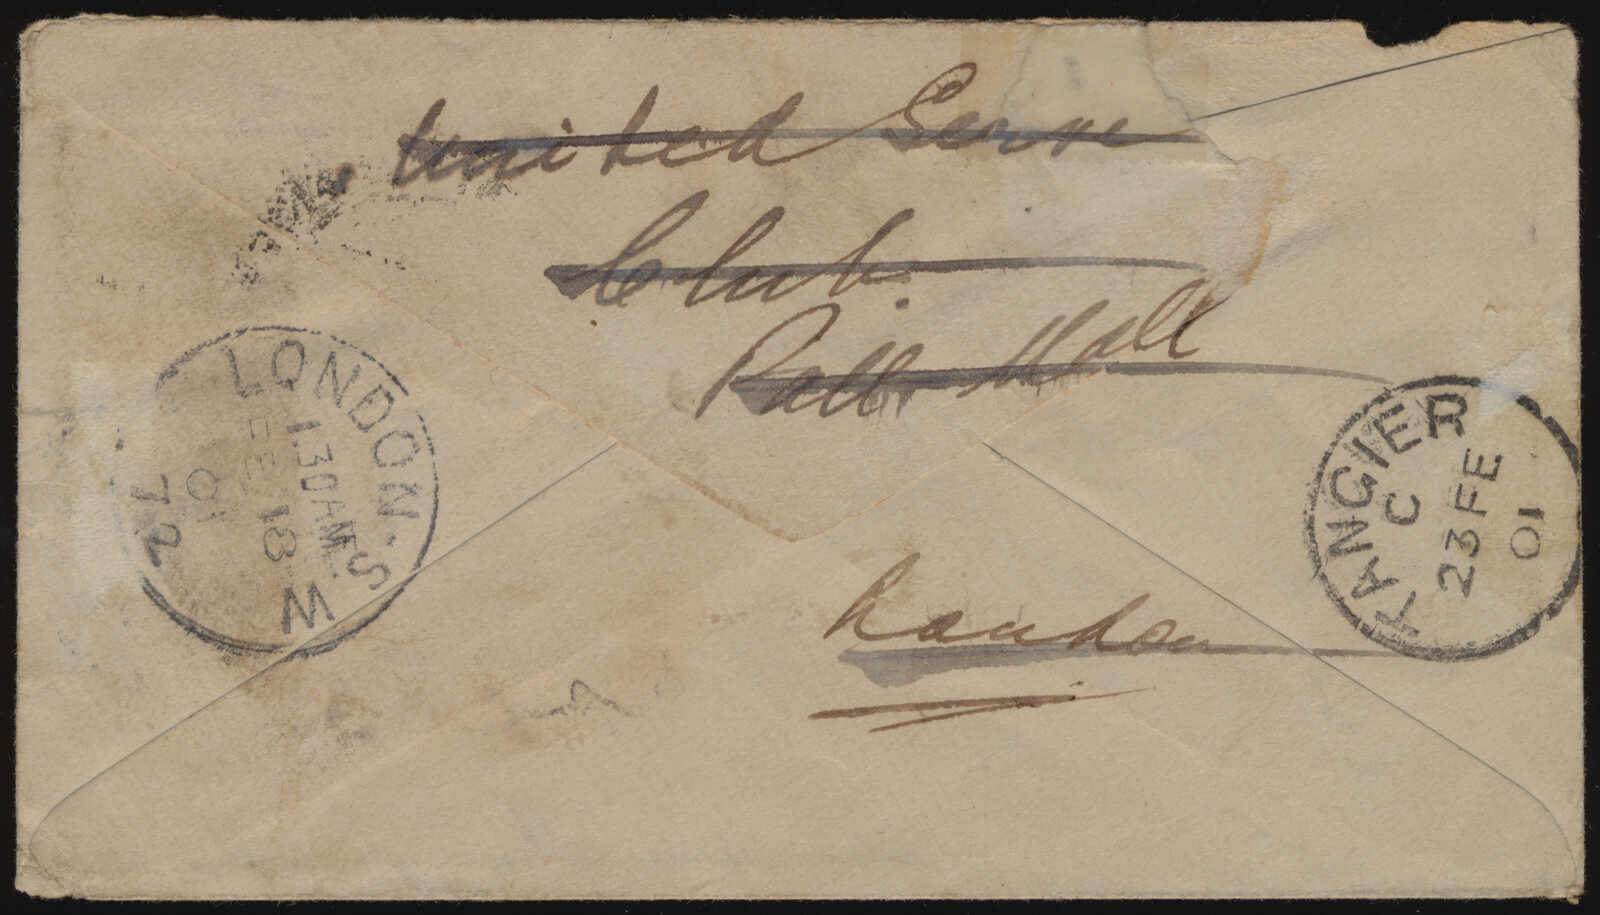 United Serve
Club.
Pall Mall
London
LONDON. S.W
1 30 AM
FE 18
01
72
TANGIER
C
23 FE
01